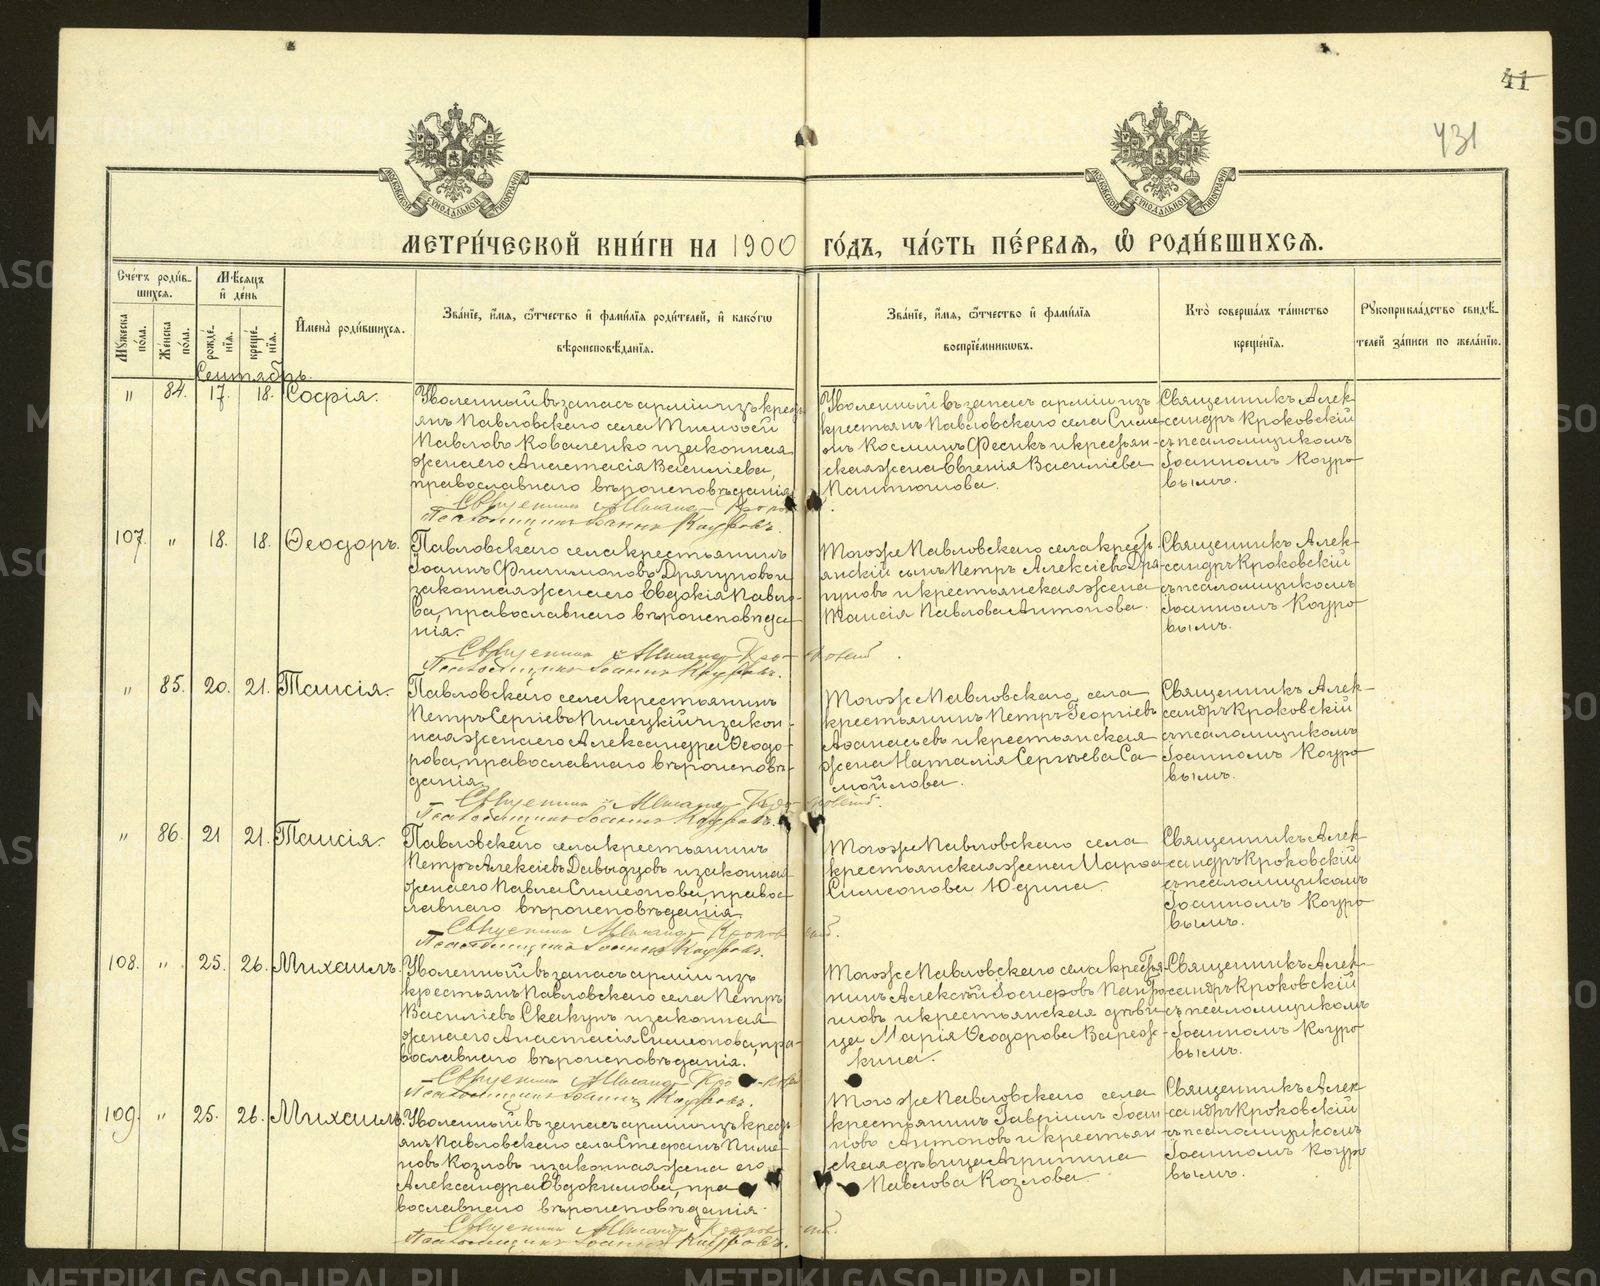 41
431
МОСКОВСКОЙ СѴНОДАЛЬНОЙ ТИПОГРАФІИ
МОСКОВСКОЙ СѴНОДАЛЬНОЙ ТИПОГРАФІИ
МЕТРИ́ЧЕСКОЙ КНИ́ГИ НА 1900 ГО́ДЪ, ЧА́СТЬ ПЕ́РВАѦ, Ѽ РОДИ́ВШИХСѦ.
Сче́тъ роди́в-
шихсѧ.
Мꙋжеска по́ла.
Же́нска по́ла.
Мѣ́сѧцъ
и҆ де́нь
рожде́нїѧ.
креще́нїѧ.
И҆мена̀ роди́вшихсѧ.
Зва́нїе, и҆́мѧ, ѻ҆́тчество и҆ фамѝлїѧ роди́телей, и҆ како́гѡ
вѣроисповѣ́данїѧ.
Зва́нїе, и҆́мѧ, ѻ҆́тчество и҆ фамѝлїѧ
воспрїе́мникѡвъ.
Кто̀ соверша́лъ та́инство
креще́нїѧ.
Рꙋкоприкла́дство свидѣ́-
телей за́писи по жела́нїю.
Сентябрь.
" 84. 17. 18. Софія.
Уволенный въ запасъ арміи изъ кресть
янъ Павловскаго села Тимофей
Павловъ Коваленко и законная
жена его Анастасія Василіева,
православнаго вѣроисповѣданія
Священникъ Александръ Кроковскій
Псаломщикъ Іоаннъ Коуровъ.
Уволенный въ запасъ арміи изъ
крестьянъ Павловскаго села Симе
онъ Косминъ Фесикъ и крестьян-
ская жена Евгенія Василіева
Пантюшова.
Священникъ Алек
сандръ Кроковскій
съ псаломщикомъ
Іоанномъ Коуро
вымъ.
107. " 18. 18. Ѳеодоръ.
Павловскаго села крестьянинъ
Іоаннъ Филимоновъ Дрягуновъ и
законная жена его Евдокія Павло-
ва, православнаго вѣроисповѣда-
нія.
Священникъ Александръ Кроковскій
Псаломщикъ Іоаннъ Коуровъ.
Тогоже Павловскаго села кресть-
янскій сынъ Петръ Алексіевъ Дря
гуновъ и крестьянская жена
Таисія Павлова Антонова.
Священникъ Алек-
сандръ Кроковскій
съ псаломщикомъ
Іоанномъ Коуро
вымъ.
" 85. 20. 21. Таисія.
Павловскаго села крестьянинъ
Петръ Сергіевъ Пилецкій и закон-
ная жена его Александра Ѳеодо-
рова, православнаго вѣроисповѣ-
данія.
Священникъ Александръ Кроковскій.
Псаломщикъ Іоаннъ Коуровъ.
Тогоже Павловскаго села
крестьянинъ Петръ Георгіевъ
Аѳанасьевъ и крестьянская
жена Наталія Сергѣева Са
мойлова.
Священникъ Алек-
сандръ Кроковскій
съ псаломщикомъ
Іоанномъ Коуро
вымъ.
" 86. 21 21. Таисія.
Павловскаго села крестьянинъ
Петръ Алексіевъ Давыдовъ и законная
жена его Павла Симеонова, право-
славнаго вѣроисповѣданія
Священникъ Александръ Кроковскій.
Псаломщикъ Іоаннъ Коуровъ.
Тогоже Павловскаго села
крестьянская жена Марѳа
Симеонова Юдина.
Священникъ Алек
сандръ Кроковскій
съ псаломщикомъ
Іоанномъ Коуро
вымъ.
108. " 25. 26. Михаилъ.
Уволенный въ запасъ арміи изъ
крестьянъ Павловскаго села Петръ
Василіевъ Скакунъ и законная
жена его Анастасія Симеонова, пра-
вославнаго вѣроисповѣданія.
Священникъ Александръ Кроковскій
Псаломщикъ Іоаннъ Коуровъ.
Тогоже Павловскаго села крестья-
нинъ Алексѣй Іосифовъ Пантю
шовъ и крестьянская дѣви
ца Марія Ѳеодорова Вареж-
кина.
Священникъ Алек-
сандръ Кроковскій
съ псаломщикомъ
Іоанномъ Коуро
вымъ.
109. " 25. 26. Михаилъ.
Уволенный въ запасъ арміи изъ кресть
янъ Павловскаго села Стефанъ Пиме
новъ Козловъ и законная жена его
Александра Евдокимова, пра
вославнаго вѣроисповѣданія.
Священникъ Александръ Кроковскій.
Псаломщикъ Іоаннъ Коуровъ.
Тогоже Павловскаго села
крестьянинъ Гавріилъ Іоан
новъ Антоновъ и крестьян
ская дѣвица Агрипина
Павлова Козлова.
Священникъ Алек
сандръ Кроковскій
съ псаломщикомъ
Іоанномъ Коуро
вымъ.
METRIKI.GASO-URAL.RU